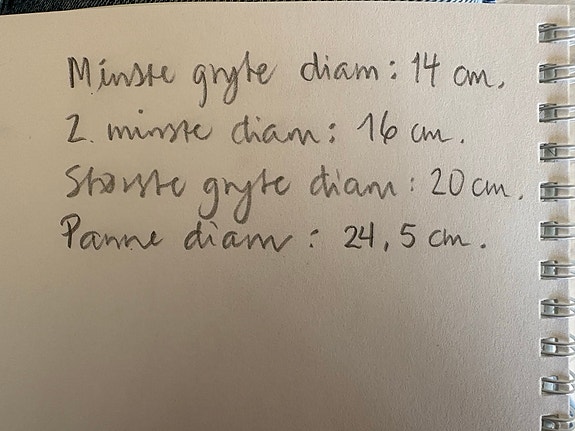 Minste gryte diam: 14 cm.
2. minste diam: 16 cm.
Største gryte diam: 20 cm.
Panne diam: 24,5 cm.